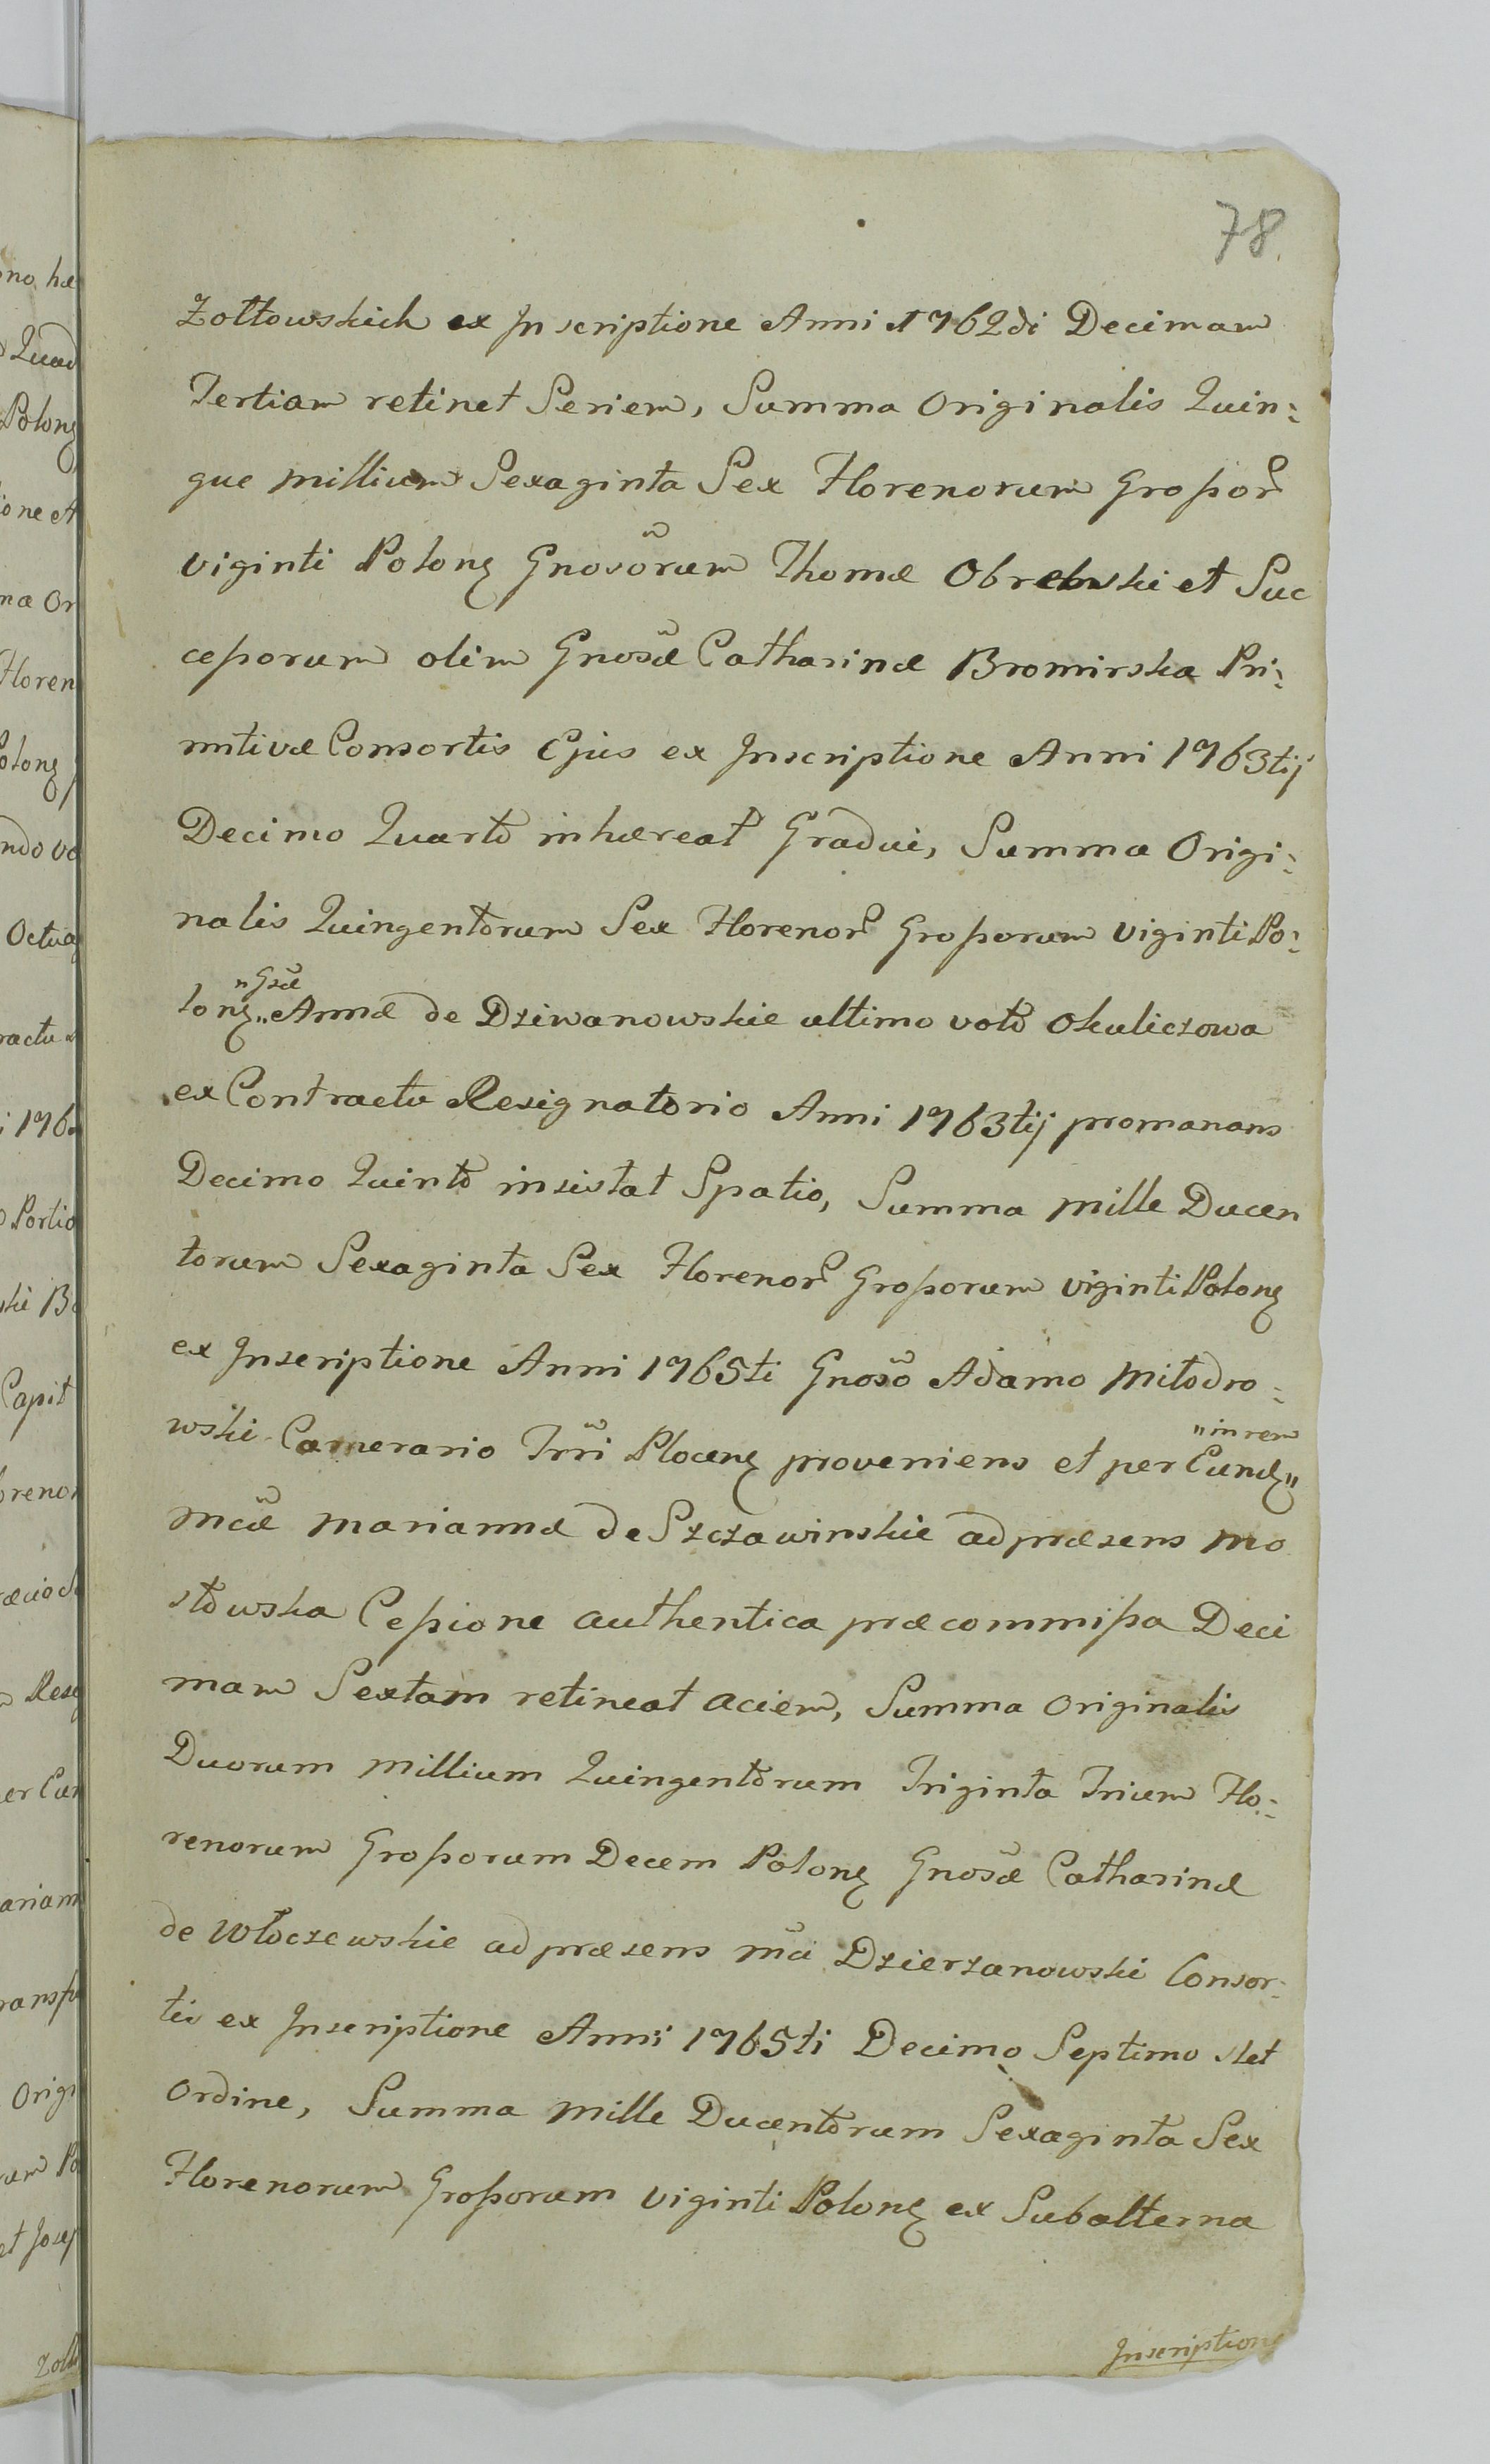 78.
Zołtowskich ex Inscriptione Anni 1762di Decimam
Tertiam retinet Seriem, Summa Originalis Quin:
que millium Sexaginta Sex Florenorum Grossor
viginti Polon Gnosõrum Thomæ Obrebski et Suc
cessorum olim Gnosæ Catharinæ Bromirska Pri:
mitivæ Consortis Ejus ex Inscriptione Anni 1763tij
Decimo Quarto inhæreat Gradui, Summa Origi:
nalis Quingentorum Sex Florenor Grossorum viginti Po:
"Gsæ
lon "Annæ de Dziwanowskie ultimo voto Okuliczowa
ex Contractu Resignatorio Anni 1763tij promanans
Decimo Quinto insistat Spatio, Summa mille Ducen
torum Sexaginta Sex Florenor Grossorum viginti Polon
ex Inscriptione Anni 1765ti Gnosõ Adamo Miłodro:
"in rem
wski Camerario Trri Plocen proveniens et per Eund"
Mcæ Mariannæ de Szczawinskie ad præsens Mo
stowska Cessione authentica præcommissa Deci
mam Sextam retineat aciem, Summa Originalis
Duorum Millium Quingentorum Triginta Trium Flo:
renorum Grossorum Decem Polon Gnosæ Catharinæ
de Włoczewskie ad præsens Mci Dzierzanowski Consor:
tis ex Inscriptione Anni 1765ti Decimo Septimo stet
Ordine, Summa Mille Ducentorum Sexaginta Sex
Florenorum Grossorum viginti Polon ex Subalterna
Inscriptione